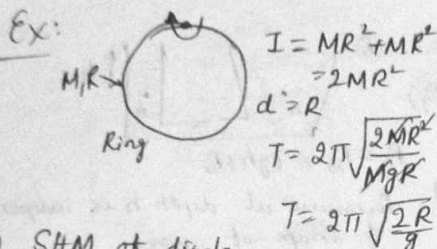 Ex:
M,R
Ring
I = MR² + MR²
= 2MR²
d = R
T = 2π √(2MR²/MgR)
T = 2π √(2R/g)
SHM of